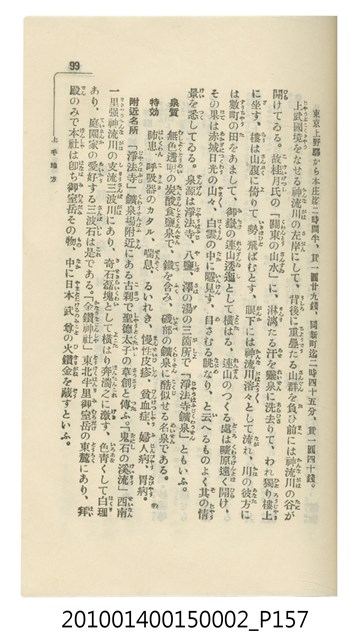 99
上毛地方
東京上野驛から本庄迄二時間半、賃一圓廿九錢。同新町迄二時四十五分、賃一圓四十錢。
上武國境をなせる神流川の左岸にして、背後に重疊たる山群を負ひ前には神流川の谷が
開けてゐる。故桂月氏の『關東の山水』に、淋漓たる汗を靈泉に洗去りて、われ獨り樓上
に坐す、樓は山腹に倚りて、勢飛ばむとす、眼下には神流川溶々として流れ、川の彼方に
は數町の田をあまして、御嶽の連山透迤として横はる、連山のつくる處は曠原遠く開け、
その果は赤城日光の山々、白雲の中に隱見す、目さむる眺なり、と云へるものよく其の情
景を悉してゐる。泉源は浮法寺、八鹽、澤の湯の三箇所で「浮法寺鑛泉」ともいふ。
泉質 無色透明の炭酸食鹽泉で、鐵を含み、磯部の鑛泉に酷似せる名泉である。
特効 肺患、呼吸器のカタル、喘息、るいれき、慢性皮疹、貧血症、婦人病、胃病。
附近名所 「浮法寺」鑛泉場附近にある古刹、聖德太子の草創と傳ふ。「鬼石の溪流」西南
一里强神流川の支流三波川にあり、奇石磊塊として横はり奔湍之に激す、色靑くして白理
あり、庭園家の愛好する三波石は是である。「金鑽神社」東北半里御室岳の東麓にあり、拜
殿のみで本社は卽ち御室岳その物、中に日本武尊の火鑽金を藏すといふ。
201001400150002_P157